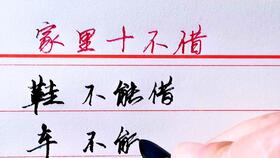 家里十不借
鞋 不能借
车 不能